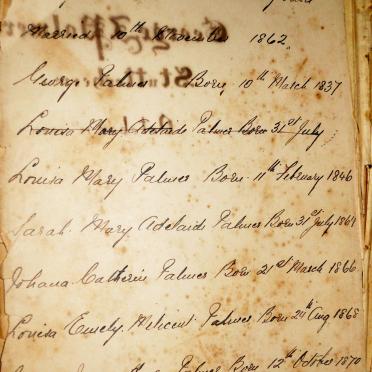 Married 10th December 1862.
George Palmer Born 10th March 1837
Louisa Mary Adelaide Palmer Born 31st July
Louisa Mary Palmer Born 11th February 1846
Sarah Mary Adelaide Palmer Born 31st July 1864
Johana Catherin Palmer Born 21st March 1866
Louisa Emely Melicent Palmer Born 24th Aug 1868
Palmer Born 12th October 1870